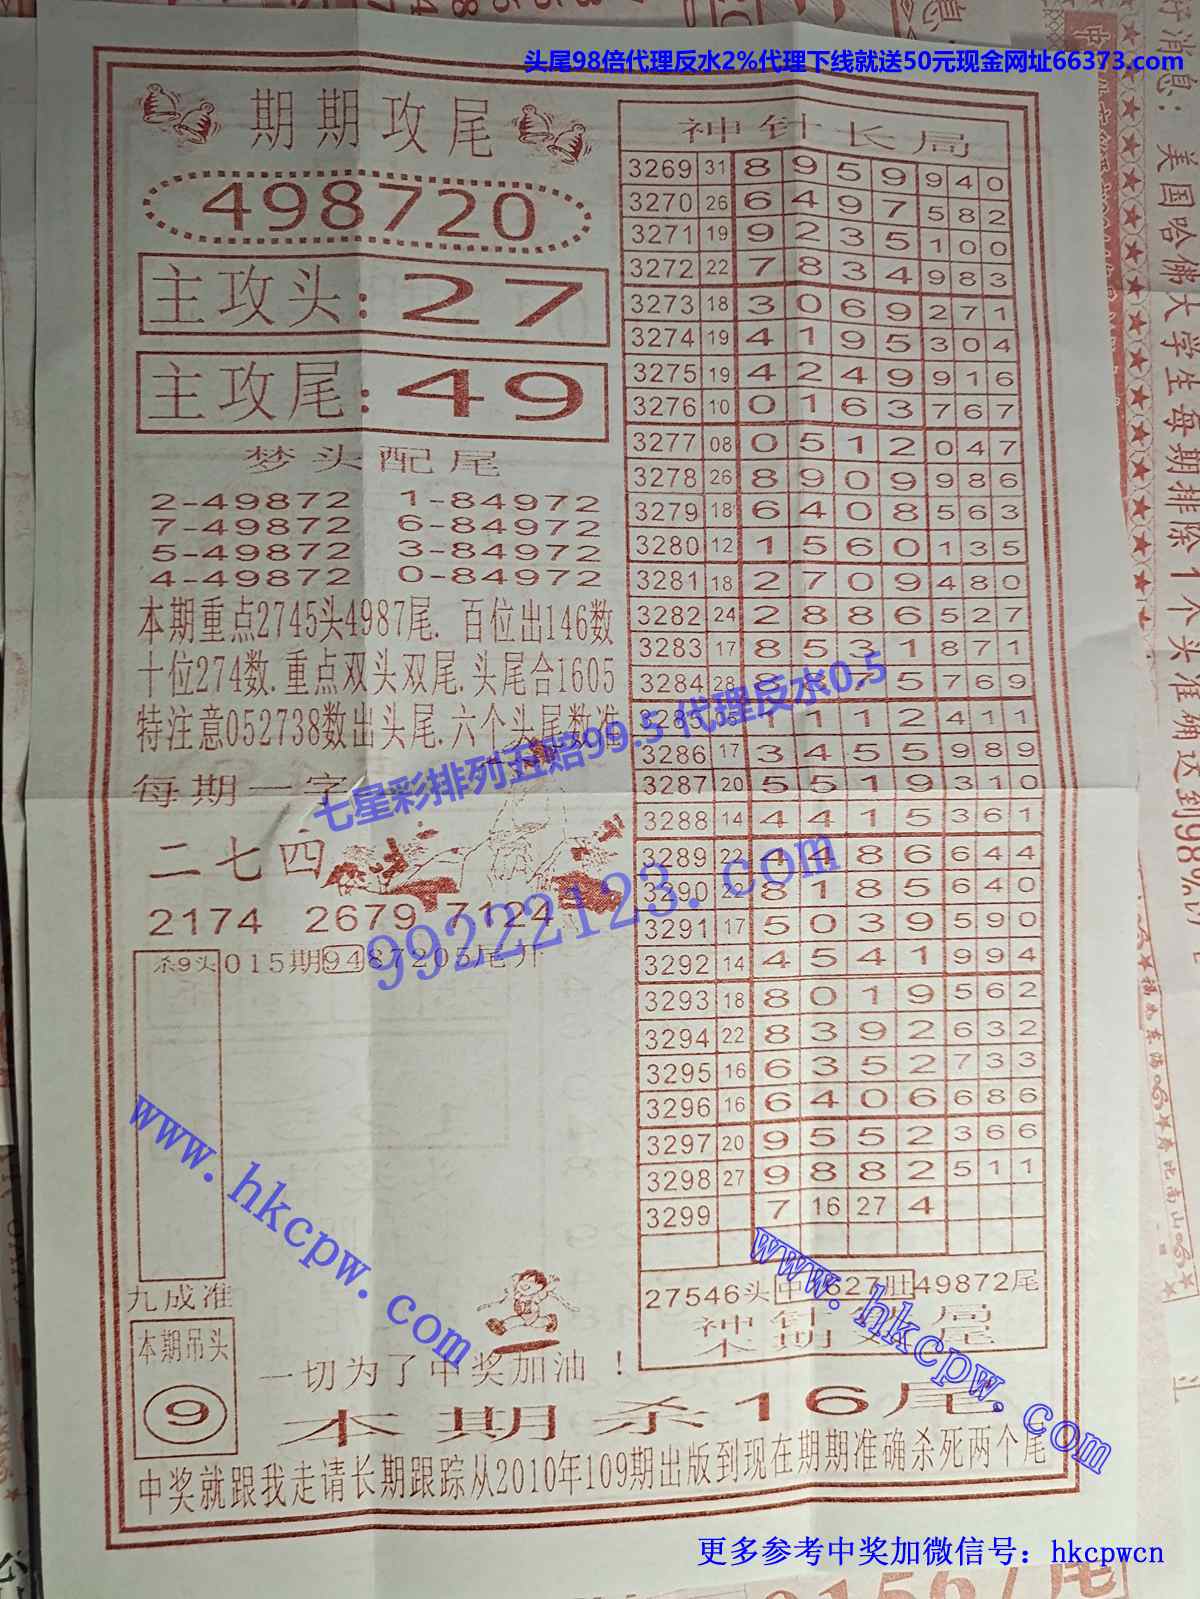 头尾98倍代理反水2%代理下线就送50元现金网址66373.com
期期攻尾
498720
主攻头:27
主攻尾:49
梦头配尾
2-49872 1-84972
7-49872 6-84972
5-49872 3-84972
4-49872 0-84972
本期重点2745头4987尾. 百位出146数
十位274数.重点双头双尾.头尾合1605
特注意052738数出头尾.六个头尾数准
每期一字
二七四
2174 2679 7124
杀9头015期9487205尾开
九成准
本期吊头
9
一切为了中奖加油！
神针长局
3269 31 8 9 5 9 9 4 0
3270 26 6 4 9 7 5 8 2
3271 19 9 2 3 5 1 0 0
3272 22 7 8 3 4 9 8 3
3273 18 3 0 6 9 2 7 1
3274 19 4 1 9 5 3 0 4
3275 19 4 2 4 9 9 1 6
3276 10 0 1 6 3 7 6 7
3277 08 0 5 1 2 0 4 7
3278 26 8 9 0 9 9 8 6
3279 18 6 4 0 8 5 6 3
3280 12 1 5 6 0 1 3 5
3281 18 2 7 0 9 4 8 0
3282 24 2 8 8 6 5 2 7
3283 17 8 5 3 1 8 7 1
3284 28 8 8 7 5 7 6 9
3285 05 1 1 1 2 4 1 1
3286 17 3 4 5 5 9 8 9
3287 20 5 5 1 9 3 1 0
3288 14 4 4 1 5 3 6 1
3289 22 4 4 8 6 6 4 4
3290 22 8 1 8 5 6 4 0
3291 17 5 0 3 9 5 9 0
3292 14 4 5 4 1 9 9 4
3293 18 8 0 1 9 5 6 2
3294 22 8 3 9 2 6 3 2
3295 16 6 3 5 2 7 3 3
3296 16 6 4 0 6 6 8 6
3297 20 9 5 5 2 3 6 6
3298 27 9 8 8 2 5 1 1
3299 7 16 27 4
27546头中1627肚49872尾
本期杀16尾
中奖就跟我走请长期跟踪从2010年109期出版到现在期期准确杀死两个尾
七星彩排列五赔99.5 代理反水0.5
99222123.com
www.hkcpw.com
www.hkcpw.com
更多参考中奖加微信号：hkcpwcn
好消息：美国哈佛大学生每期排除1个头准确达到98%